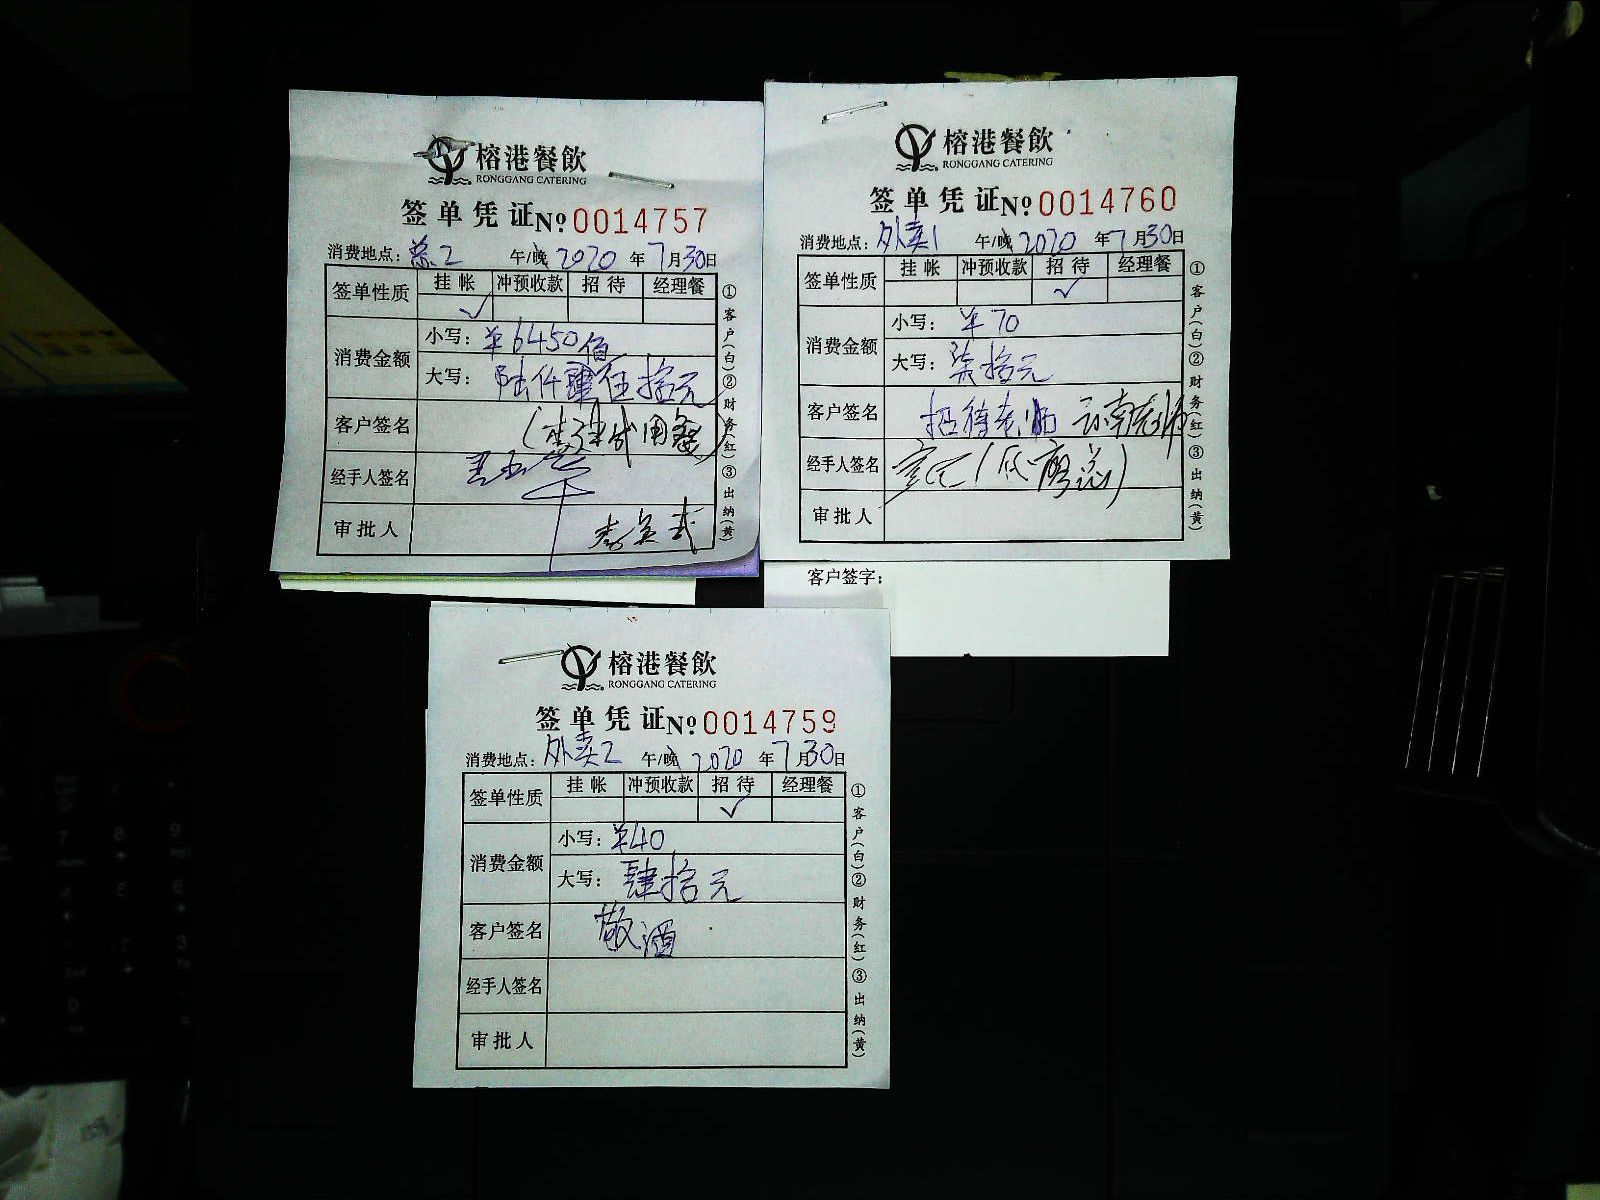 榕港餐飲
RONGGANG CATERING
签单凭证№0014757
消费地点：总2 午/晚 2020年7月30日
签单性质 挂帐 冲预收款 招待 经理餐
✓
消费金额 小写：¥6450
佰
大写：陆仟肆伍拾元
客户签名 用餐)
经手人签名
审批人
①客户(白)②财务(红)③出纳(黄)
榕港餐飲
RONGGANG CATERING
签单凭证№0014760
消费地点：外卖1 午/晚 2020年7月30日
签单性质 挂帐 冲预收款 招待 经理餐
✓
消费金额 小写：¥70
大写：柒拾元
客户签名 招待老师 云南老师
经手人签名
审批人
①客户(白)②财务(红)③出纳(黄)
客户签字：
榕港餐飲
RONGGANG CATERING
签单凭证№0014759
消费地点：外卖2 午/晚 2020年7月30日
签单性质 挂帐 冲预收款 招待 经理餐
✓
消费金额 小写：¥40
大写：肆拾元
客户签名 敬酒
经手人签名
审批人
①客户(白)②财务(红)③出纳(黄)